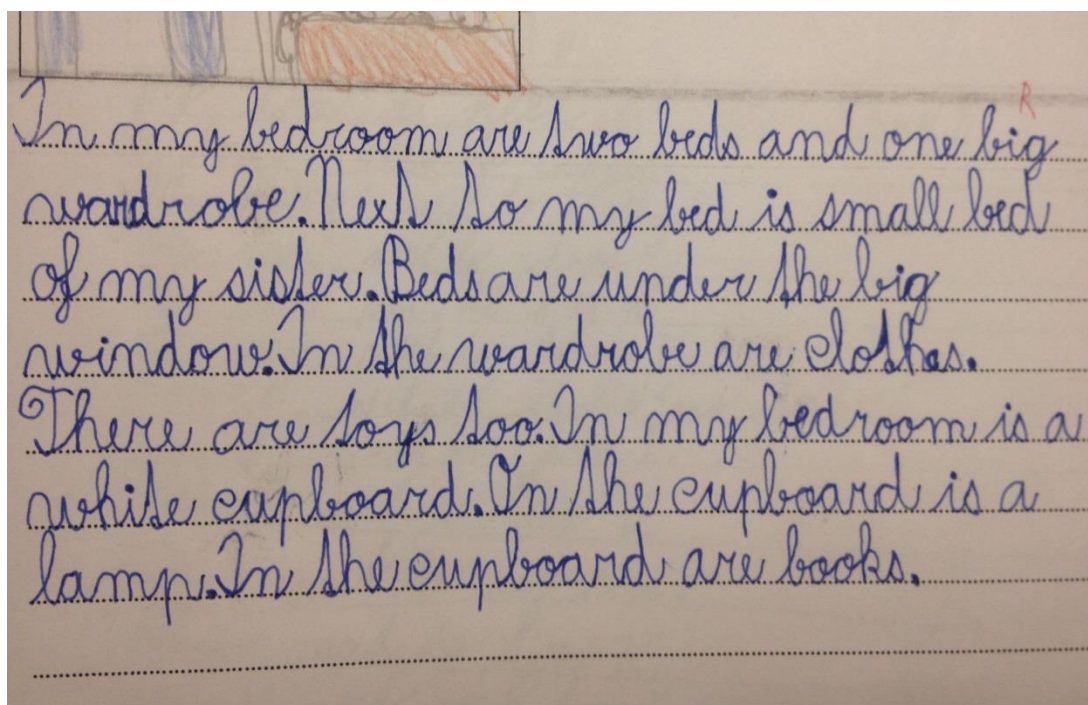 R
In my bedroom are two beds and one big
wardrobe. Next to my bed is small bed
of my sister. Beds are under the big
window. In the wardrobe are clothes.
There are toys too. In my bedroom is a
white cupboard. On the cupboard is a
lamp. In the cupboard are books.